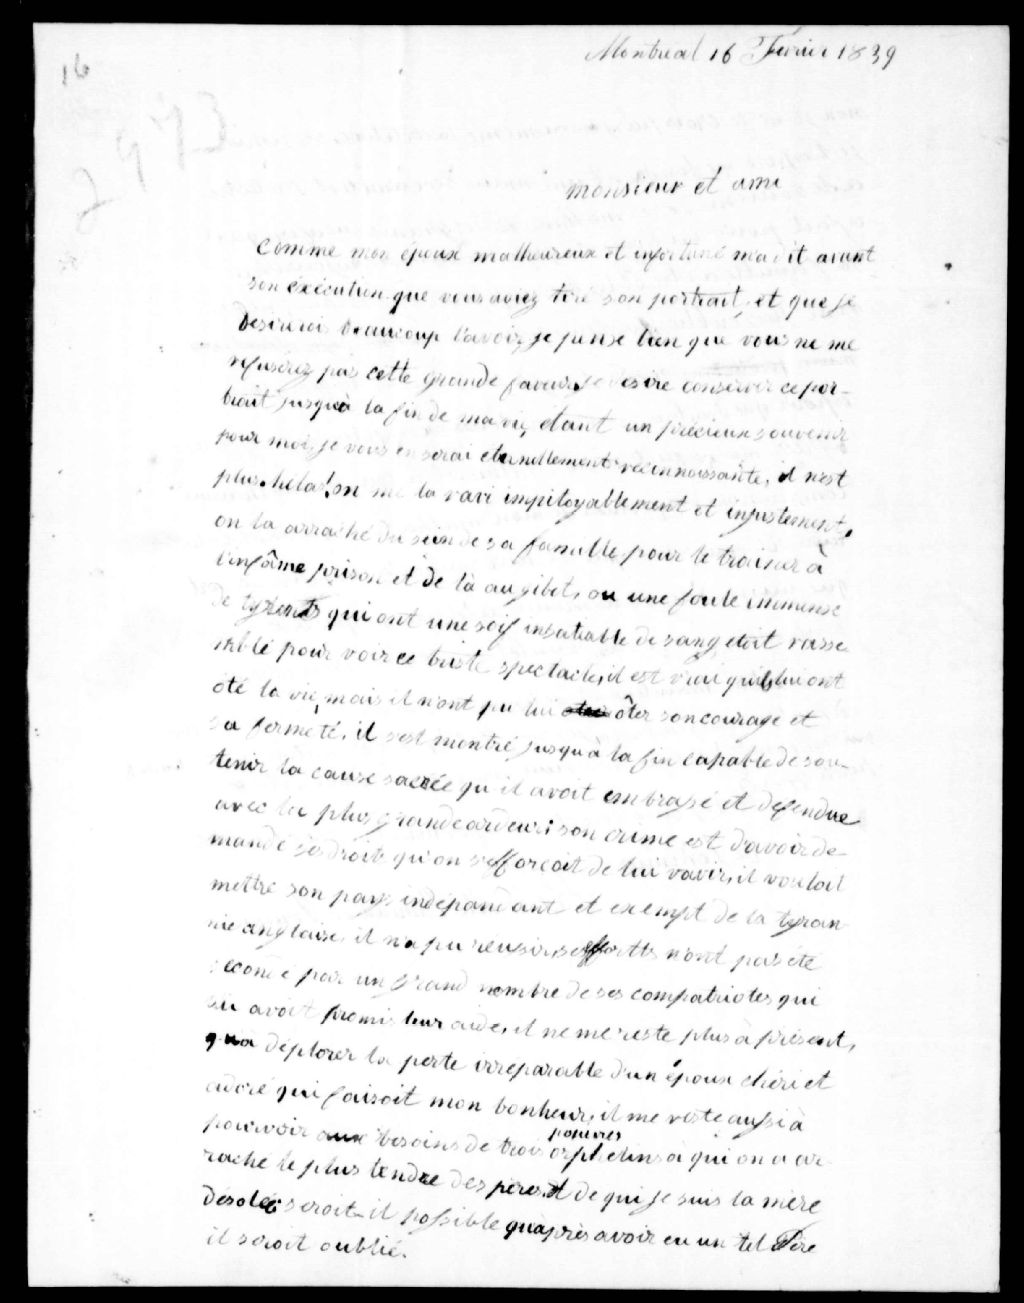 16
Montreal 16 Fevrier 1839
2973
Monsieur et ami
Comme mon époux malheureux et infortuné ma dit avant
son exécution que vous aviez tiré son portrait, et que je
desirerois beaucoup l'avoir, je pense bien que vous ne me
refuserez pas cette grande faveur, je desire conserver ce por-
trait jusquà la fin de ma vie, etant un précieux souvenir
pour moi, je vous en serai eternellement reconnoissante, il n'est
plus. helas! on me la ravi impitoyablement et injustement,
on la arraché du sein de sa famille pour le trainer à
l'infâme prison et de là au gibet, ou une foule immense
de tyrants qui ont une soif insatiable de sang etoit rasse
mblé pour voir ce triste spectacle, il est vrai quils lui ont
oté la vie, mais il n'ont pu lui ôter son courage et
sa fermeté, il s'est montré jusqu'à la fin capable de sou-
tenir la cause sacrée qu'il avoit embrasé et defendue
avec la plus grande ardeur; son crime est d'avoir de-
mandé ses droits qu'on s'efforçoit de lui ravir, il vouloit
mettre son pays indépandant et exempt de la tyran-
nie anglaise, il n'a pu réusir, ses effortts n'ont pas été
secondé par un grand nombre de ses compatriotes qui
lui avoit promis leur aide, il ne me reste plus à présent,
qu'a déplorer la perte irréparable d'un époux chéri et
adoré qui faisoit mon bonheur, il me reste aussi à
pourvoir aux besoins de trois pauvres orphelins à qui on a ar-
raché le plus tendre des pères et de qui je suis la mère
désolée seroit-il possible qu'après avoir eu un tel Père
il seroit oublié.